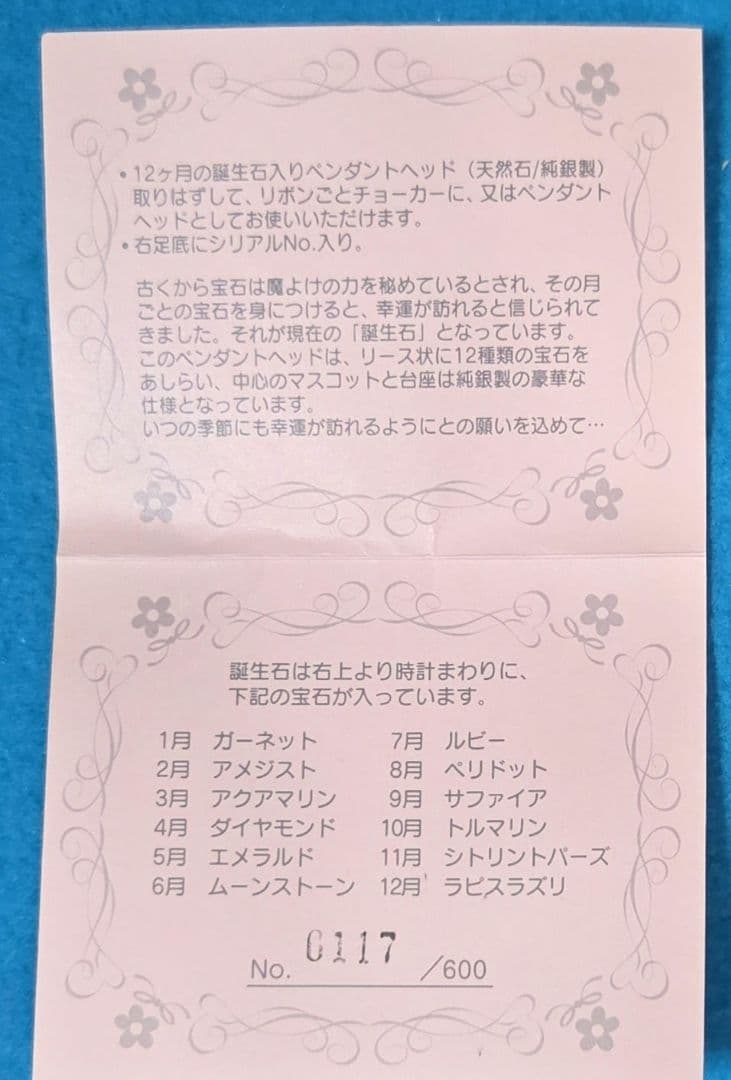 ・12ヶ月の誕生石入りペンダントヘッド（天然石/純銀製）
取りはずして、リボンごとチョーカーに、又はペンダント
ヘッドとしてお使いいただけます。
・右足底にシリアルNo.入り。
古くから宝石は魔よけの力を秘めているとされ、その月
ごとの宝石を身につけると、幸運が訪れると信じられて
きました。それが現在の「誕生石」となっています。
このペンダントヘッドは、リース状に12種類の宝石を
あしらい、中心のマスコットと台座は純銀製の豪華な
仕様となっています。
いつの季節にも幸運が訪れるようにとの願いを込めて…
誕生石は右上より時計まわりに、
下記の宝石が入っています。
1月 ガーネット 7月 ルビー
2月 アメジスト 8月 ペリドット
3月 アクアマリン 9月 サファイア
4月 ダイヤモンド 10月 トルマリン
5月 エメラルド 11月 シトリントパーズ
6月 ムーンストーン 12月 ラピスラズリ
No. 0117 /600